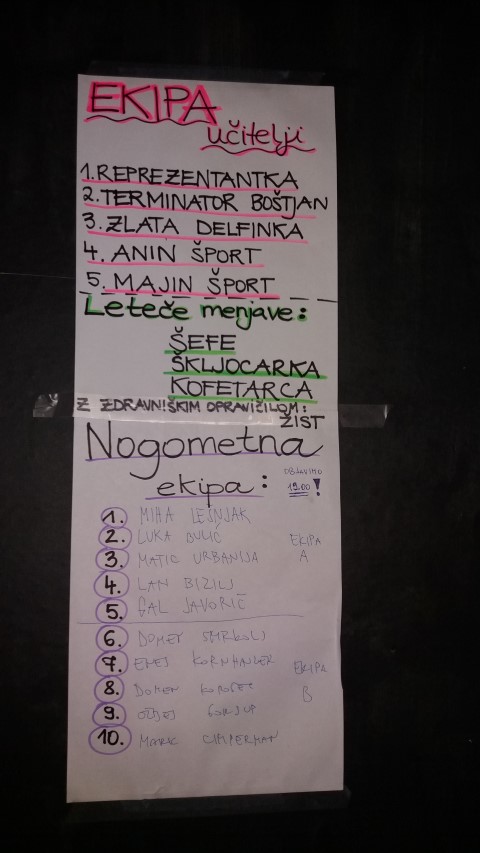 EKIPA
učitelji
1. REPREZENTANTKA
2. TERMINATOR BOŠTJAN
3. ZLATA DELFINKA
4. ANIN ŠPORT
5. MAJIN ŠPORT
Leteče menjave:
ŠEFE
ŠKLJOCARKA
KOFETARCA
Z ZDRAVNIŠKIM OPRAVIČILOM:
ŽIST
Nogometna
ekipa:
OBJAVIMO
19.00!
1. MIHA LESNJAK
2. LUKA BULIĆ
3. MATIC URBANIJA
EKIPA
A
4. LAN BIZILJ
5. GAL JAVORIČ
6. DOMEN
7. KORNHAUSER
EKIPA
B
8. DOMEN
9.
10. CIMPERMAN